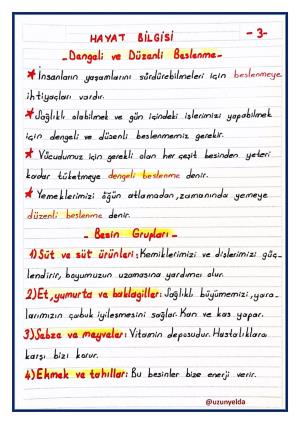 HAYAT BİLGİSİ
- 3 -
- Dengeli ve Düzenli Beslenme -
★ İnsanların yaşamlarını sürdürebilmeleri için beslenmeye
ihtiyaçları vardır.
★ Sağlıklı olabilmek ve gün içindeki işlerimizi yapabilmek
için dengeli ve düzenli beslenmemiz gerekir.
★ Vücudumuz için gerekli olan her çeşit besinden yeteri
kadar tüketmeye dengeli beslenme denir.
★ Yemeklerimizi öğün atlamadan, zamanında yemeye
düzenli beslenme denir.
- Besin Grupları -
1) Süt ve süt ürünleri: Kemiklerimizi ve dişlerimizi güç-
lendirir, boyumuzun uzamasına yardımcı olur.
2) Et, yumurta ve baklagiller: Sağlıklı büyümemizi, yara-
larımızın çabuk iyileşmesini sağlar. Kan ve kas yapar.
3) Sebze ve meyveler: Vitamin deposudur. Hastalıklara
karşı bizi korur.
4) Ekmek ve tahıllar: Bu besinler bize enerji verir.
@uzunyelda